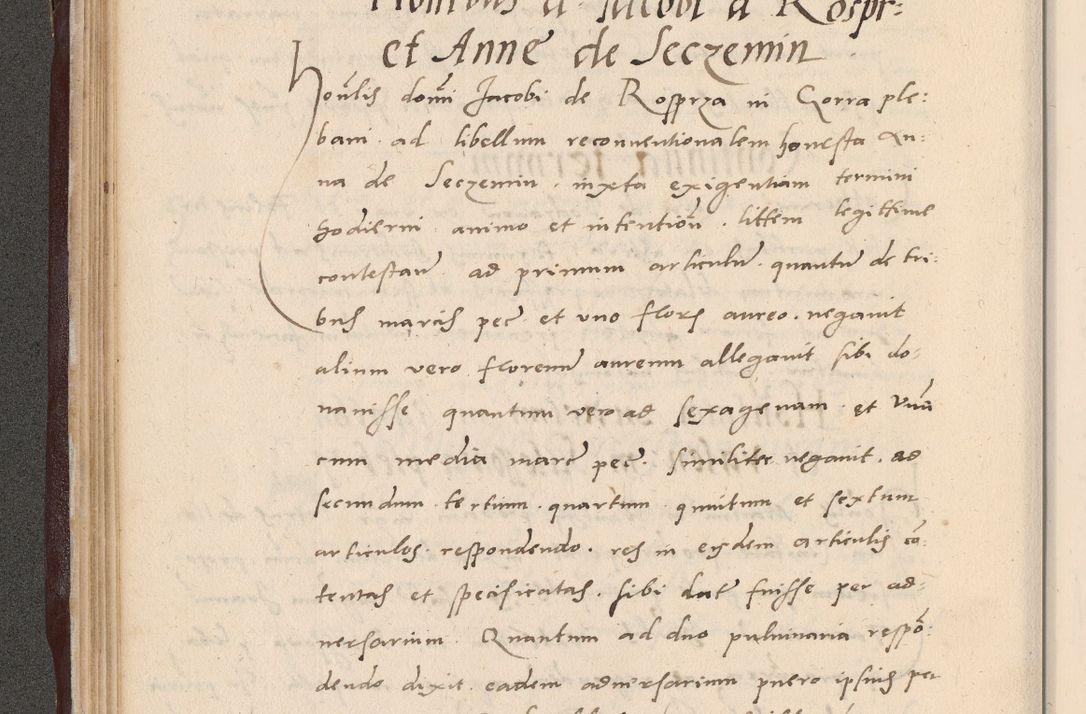 Honlbus d. Jacobi a Rospr:
et Anne de Seczemin
Honlis domi Jacobi de Rosprza in Gorra ple:
bani . ad libellum reconuentionalem honesta An:
na de Seczemin . iuxta exigentiam termini
hodierni animo et intention . littem legittime
contestan . ad primum articulum . quantum de tri:
bus marcis pec et vno flore aureo . negauit
alium vero florenum aureum allegauit sibi do:
nauisse quantum vero ad sexagenam et vnam
cum media marc pec . similiter negauit . ad
secundum . tertium . quartum . quintum et sextum
articulos . respondendo . res in eisdem articulis con:
tentas et specificatas . sibi dat fuisse per ad:
uersarium . Quantum ad duo puluinaria respon:
dendo dixit . eadem aduersarium puero ipsius per